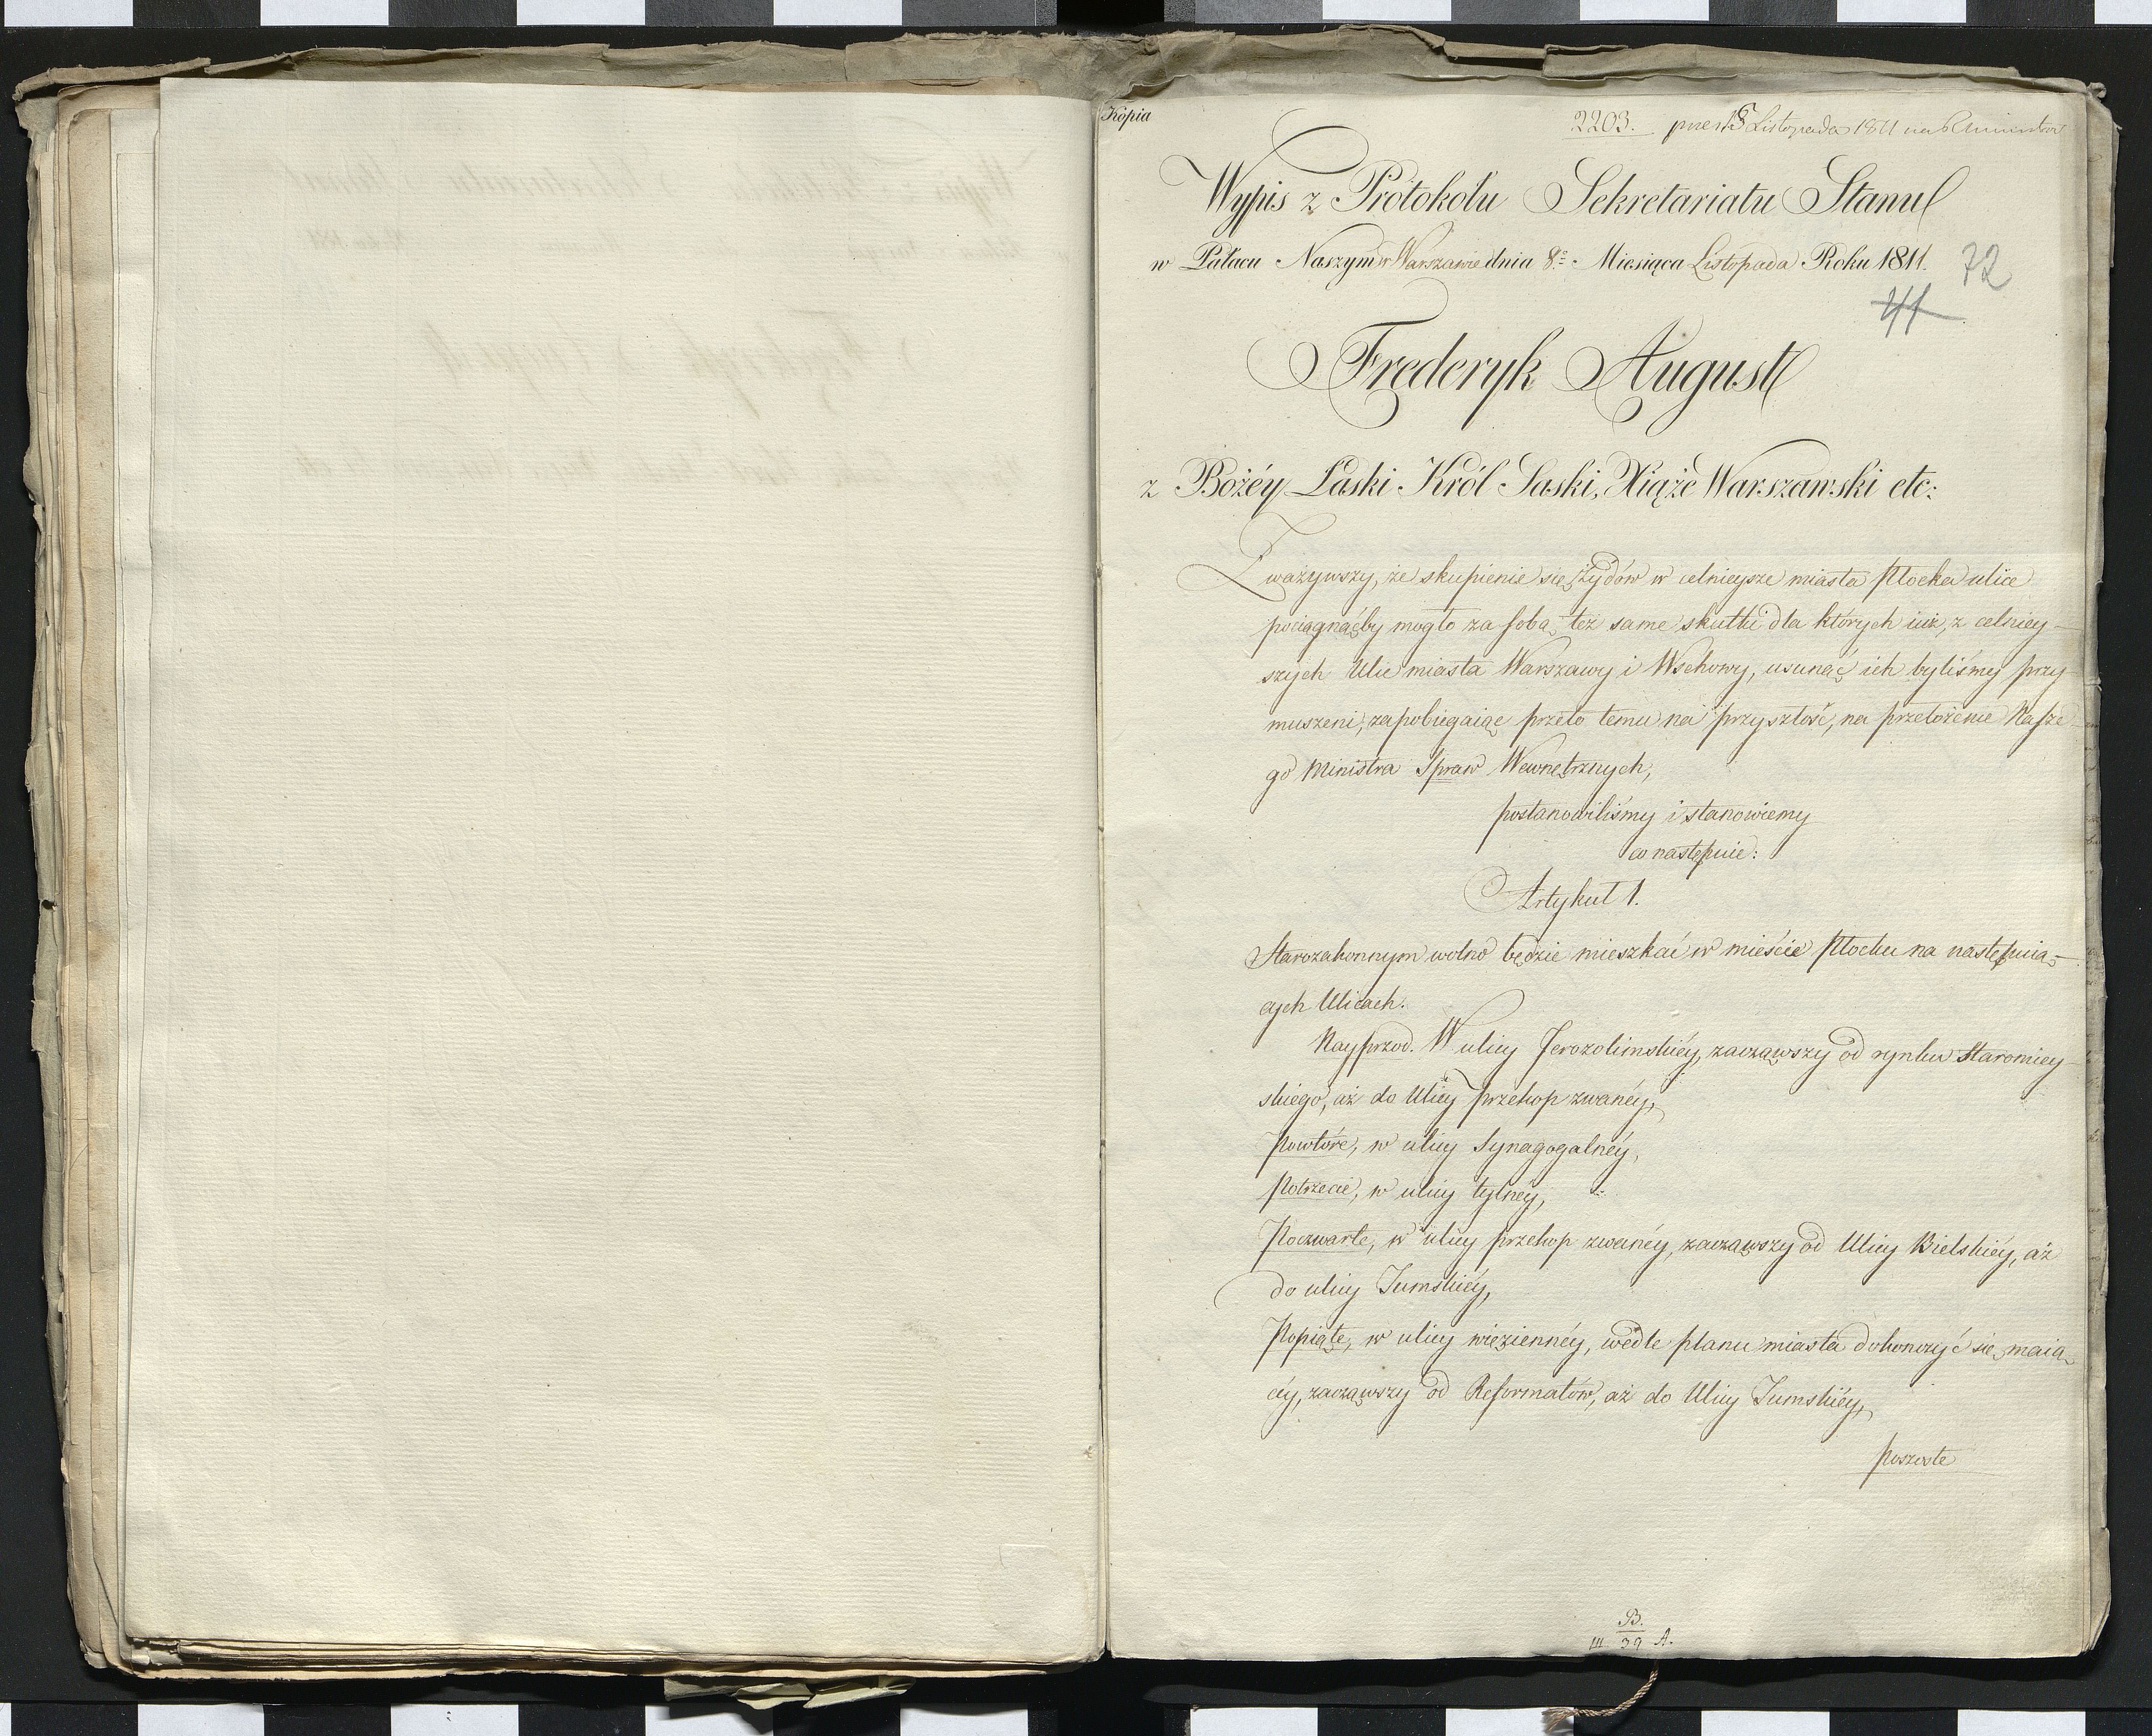 Kopia
2203. 18 Listopada 1811
Wypis z Protokołu Sekretariatu Stanu
w Pałacu Naszym w Warszawie dnia 8º Miesiąca Listopada Roku 1811.
72
41
Frederyk August
z Bożéy Łaski Król Saski, Xiąże Warszawski etc:
Zważywszy, że skupienie się Żydów w celnieysze miasta Płocka ulice
pociągnąćby mogło za sobą też same skutki dla których iuż, z celniey-
szych Ulic miasta Warszawy i Wschowy, usunąć ich byliśmy przy-
muszeni, zapobiegaiąc przeto temu na przyszłość, na przełożenie Nasze-
go Ministra Spraw Wewnętrznych,
postanowiliśmy i stanowiemy
co następuie:
Artykuł 1.
Starozakonnym wolno będzie mieszkać w mieście Płocku na następuią-
cych Ulicach.
Nayprzod. W ulicy Jerozolimskiéy, zacząwszy od rynku Staromiey-
skiego, aż do Ulicy przekop zwanéy,
Powtóre, w ulicy Synagogalnéy,
Potrzecie, w ulicy tylnéy,
Poczwarte, w ulicy przekop zwanéy, zacząwszy od Ulicy Bielskiéy, aż
do ulicy Tumskiéy,
Popiąte, w ulicy więziennéy, wedle planu miasta dokonczyć się maią-
céy, zacząwszy od Reformatów, aż do Ulicy Tumskiéy,
poszoste
B.
III 39 A.